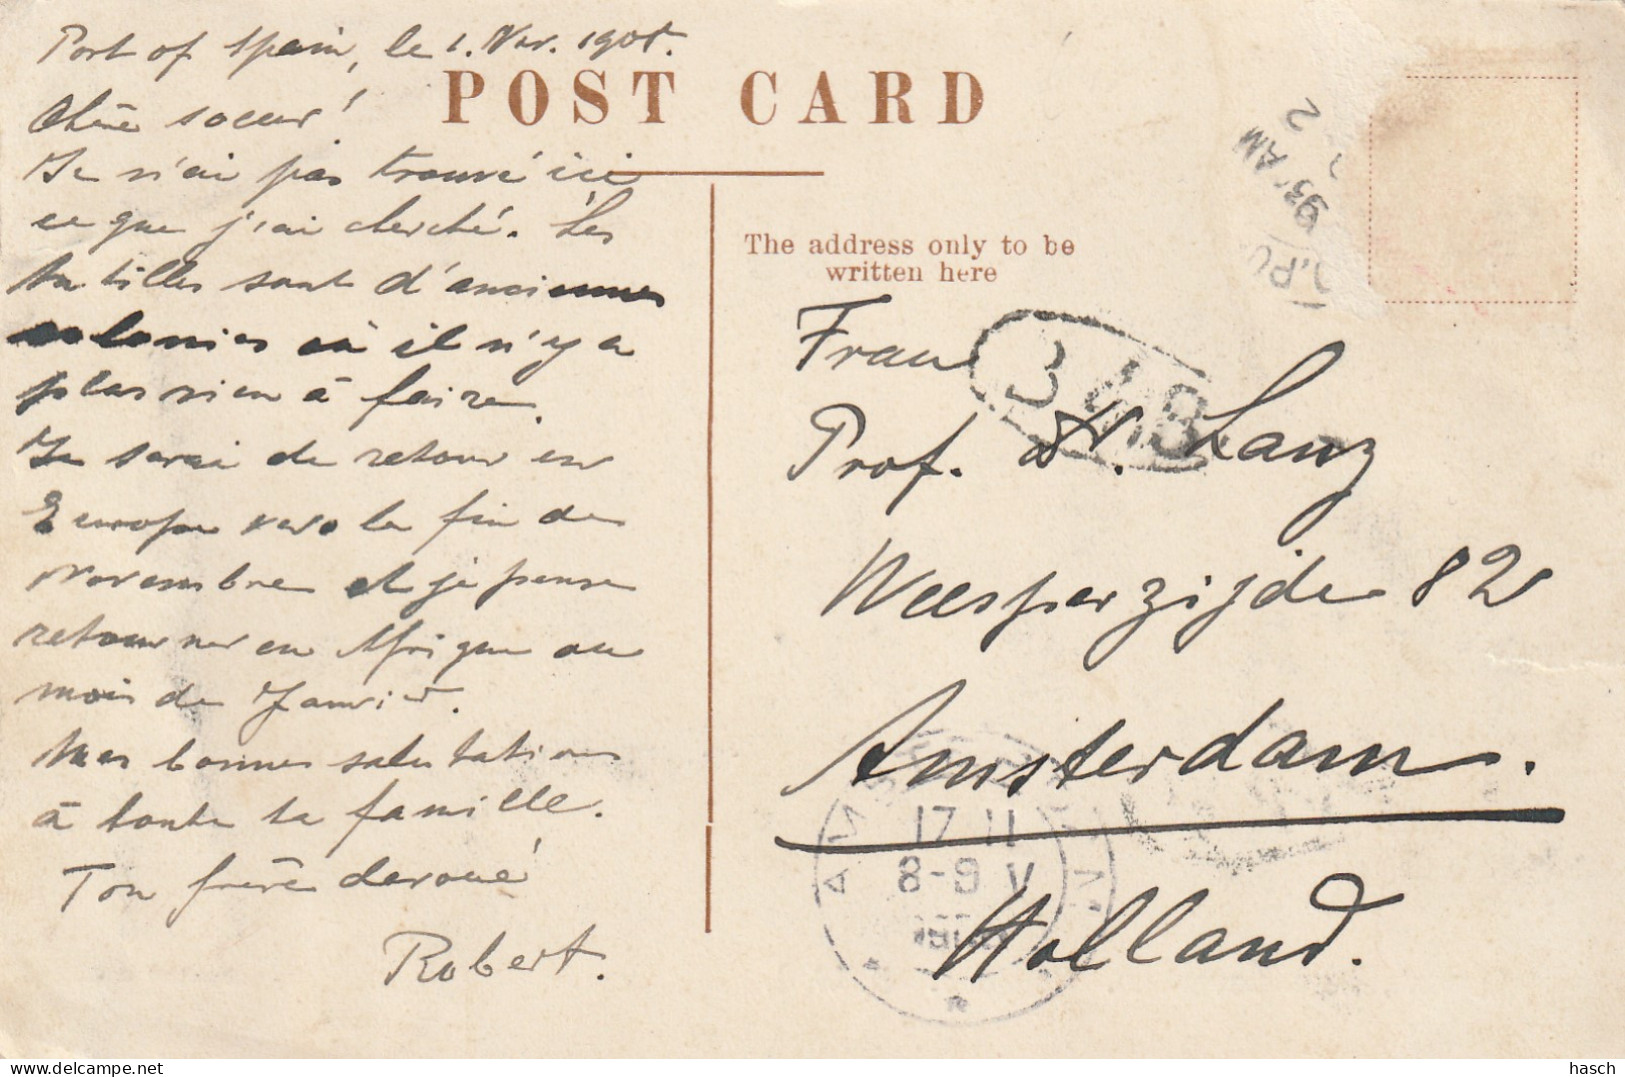 Port of Spain, le 1. Nov. 1908.
POST CARD
Chère soeur!
Je n'ai pas trouvé ici
ce que j'ai cherché. Les
Antilles sont d'anciennes
colonies où il n'y a
plus rien à faire.
Je serai de retour en
Europe vers la fin de
Novembre et je pense
retourner en Afrique au
mois de Janvier.
Mes bonnes salutations
à toute ta famille.
Ton frère devoué
Robert.
The address only to be
written here
Frau
Prof. Dr. Lanz
Weesperzijde 82
Amsterdam.
Holland.
348
930 AM
2
17 11
8-9 V
hasch